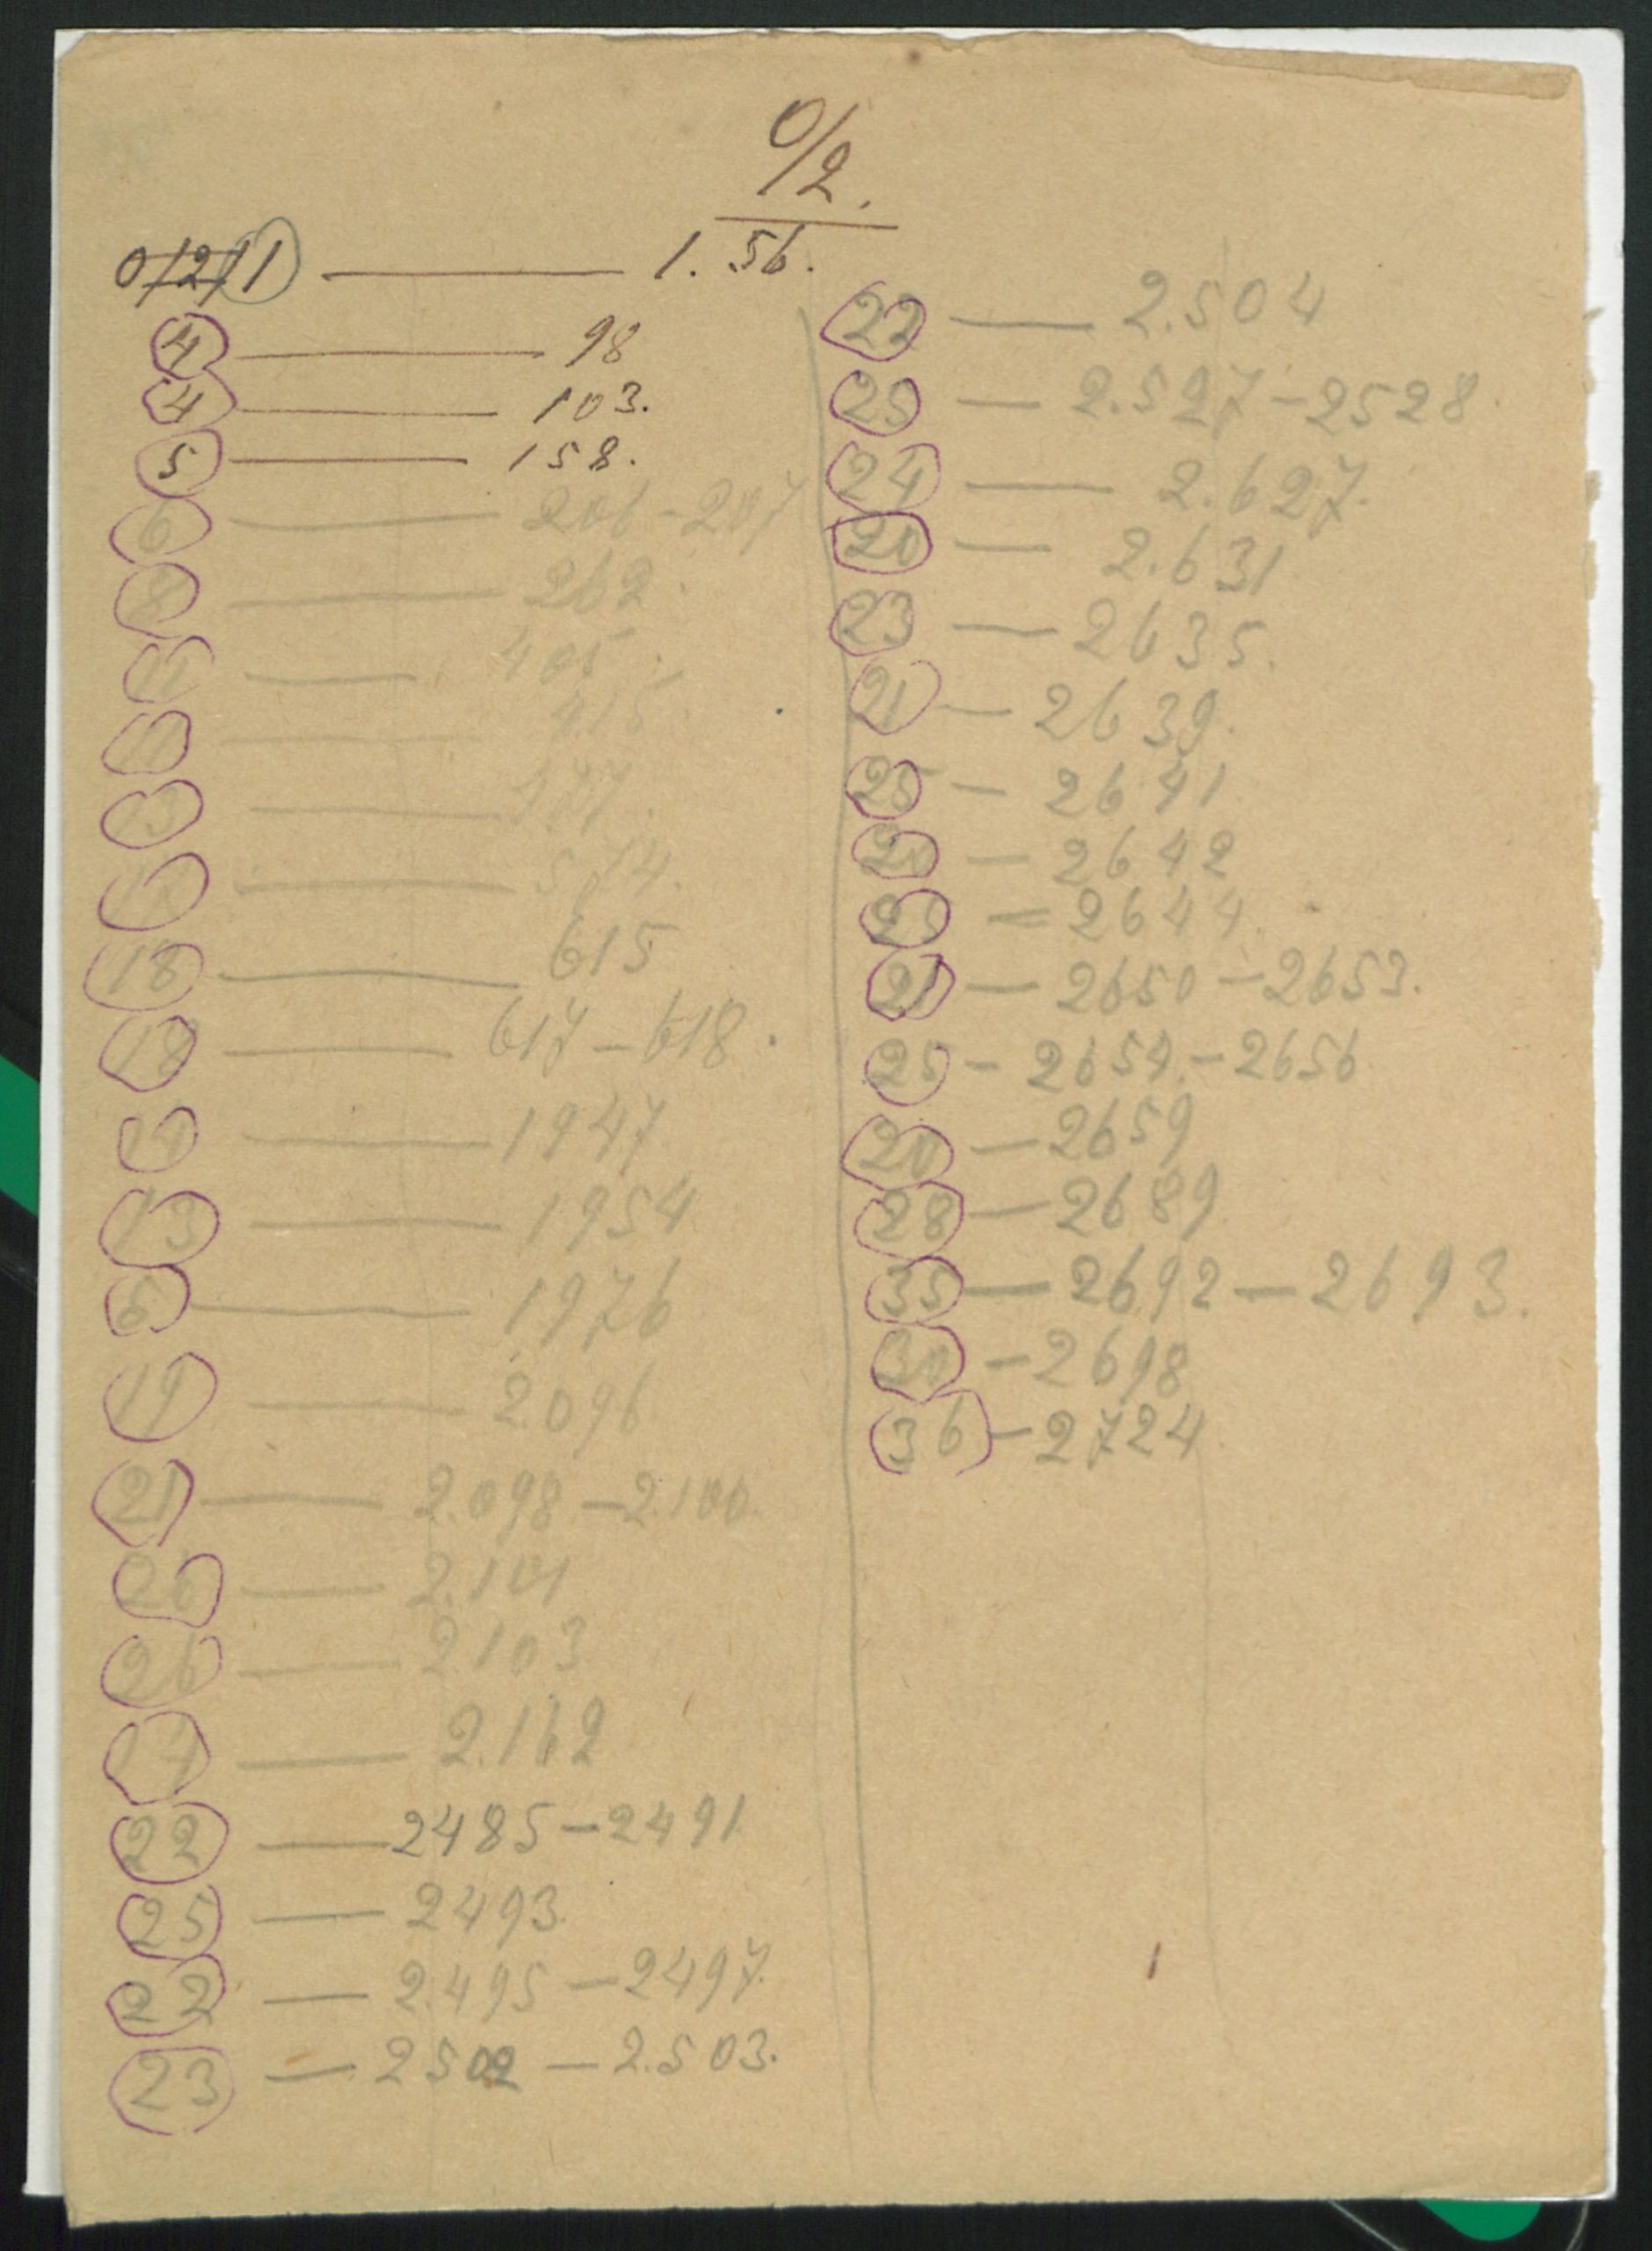 0/2.
0/2/1 — 1. 56.
4 — 98
4 — 103.
5 — 158.
6 — 206-207
8 — 262.
11 — 405
11 — 415
13 —
— 574.
18 — 615
18 — 617-618.
14 — 1947
13 — 1954
6 — 1976
19 — 2096
21 — 2.098-2.100.
26 — 2.101
26 — 2103
17 — 2.162
22 — 2485-2491
25 — 2493.
22 — 2.495-2497.
23 — 2502-2.503.
22 — 2.504
25 — 2.527-2528.
24 — 2.627.
20 — 2.631
23 — 2635.
21 — 2639.
25 — 2641
20 — 2642
25 = 2644.
21 — 2650-2653.
25 - 2654.-2656
20 — 2659
28 — 2689
35 — 2692 — 2693.
30 - 2698
36 - 2724